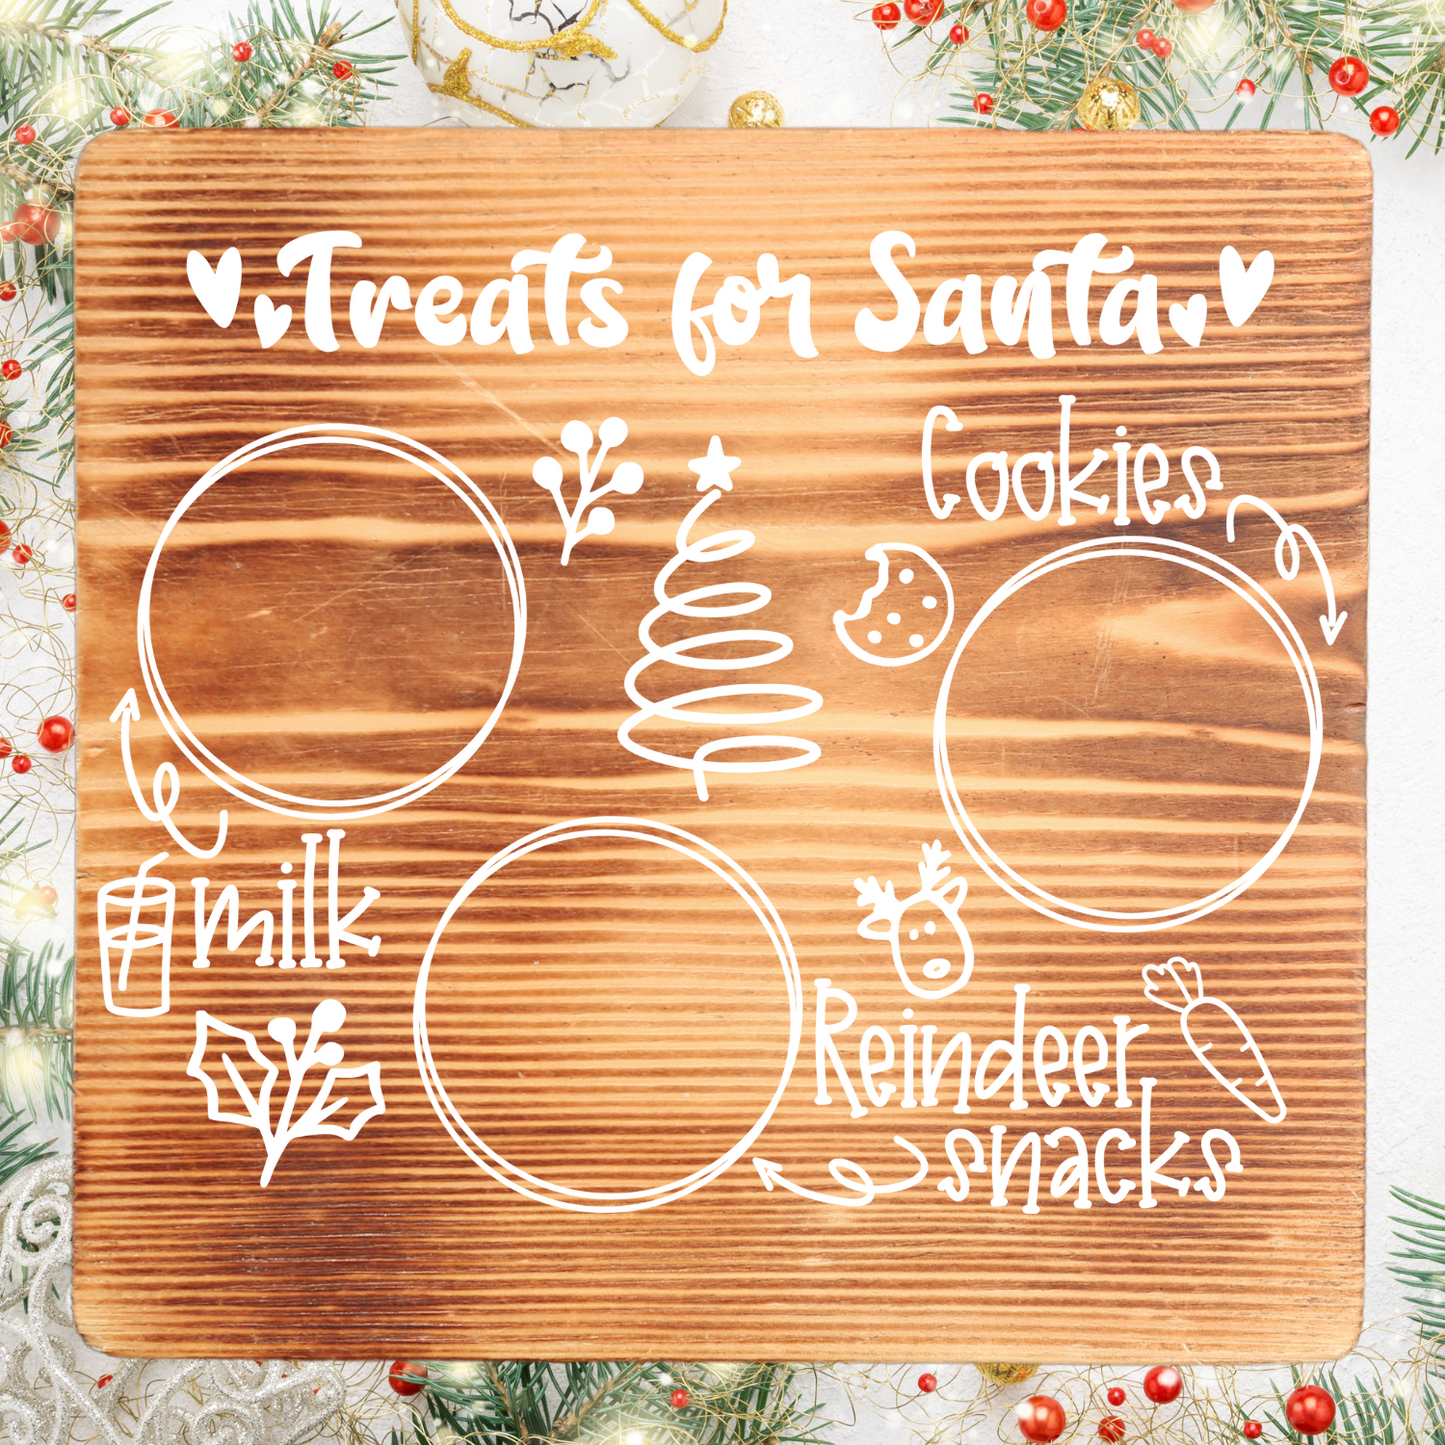 Treats for Santa
Cookies
milk
Reindeer
snacks